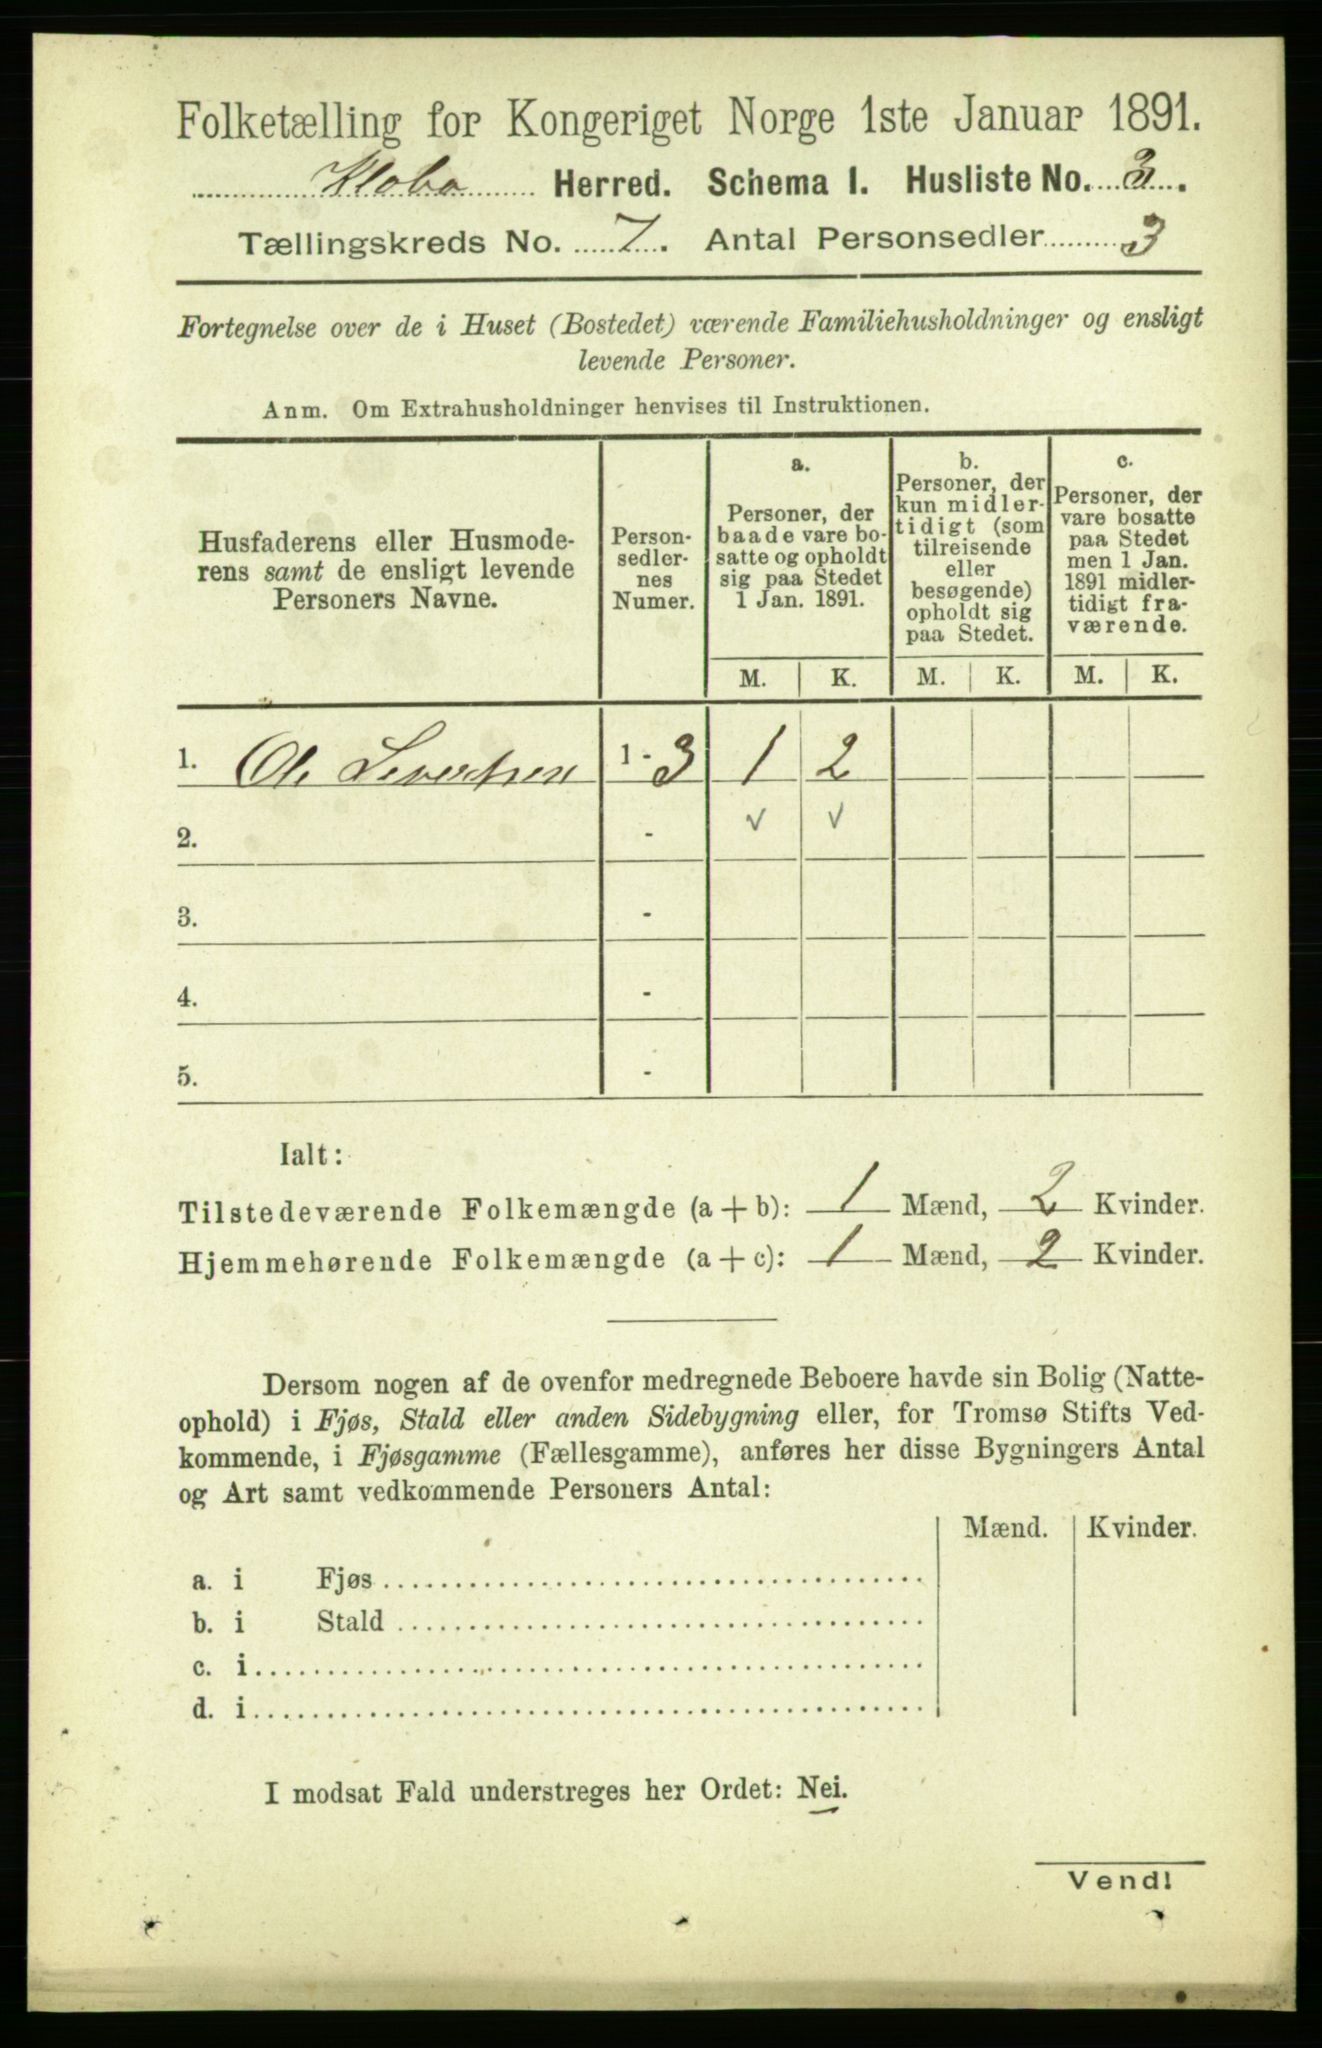 Folketælling for Kongeriget Norge 1ste Januar 1891.
Herred. Schema 1. Husliste No. 3.
Tællingskreds No. 7. Antal Personsedler 3
Fortegnelse over de i Huset (Bostedet) værende Familiehusholdninger og ensligt
levende Personer.
Anm. Om Extrahusholdninger henvises til Instruktionen.
Husfaderens eller Husmode-
rens samt de ensligt levende
Personers Navne.
Person-
sedler-
nes
Numer.
a.
Personer, der
baade vare bo-
satte og opholdt
sig paa Stedet
1 Jan. 1891.
b.
Personer, der
kun midler-
tidigt (som
tilreisende
eller
besøgende)
opholdt sig
paa Stedet.
c.
Personer, der
vare bosatte
paa Stedet
men 1 Jan.
1891 midler-
tidigt fra-
værende.
M. K. M. K. M. K.
1. Ole Sivertsen 1 - 3 1 2
2. - √ √
3. -
4. -
5. -
Ialt:
Tilstedeværende Folkemængde (a + b): 1 Mænd, 2 Kvinder.
Hjemmehørende Folkemængde (a + c): 1 Mænd, 2 Kvinder.
Dersom nogen af de ovenfor medregnede Beboere havde sin Bolig (Natte-
ophold) i Fjøs, Stald eller anden Sidebygning eller, for Tromsø Stifts Ved-
kommende, i Fjøsgamme (Fællesgamme), anføres her disse Bygningers Antal
og Art samt vedkommende Personers Antal:
Mænd. Kvinder.
a. i Fjøs
b. i Stald
c. i
d. i
I modsat Fald understreges her Ordet: Nei.
Vend!